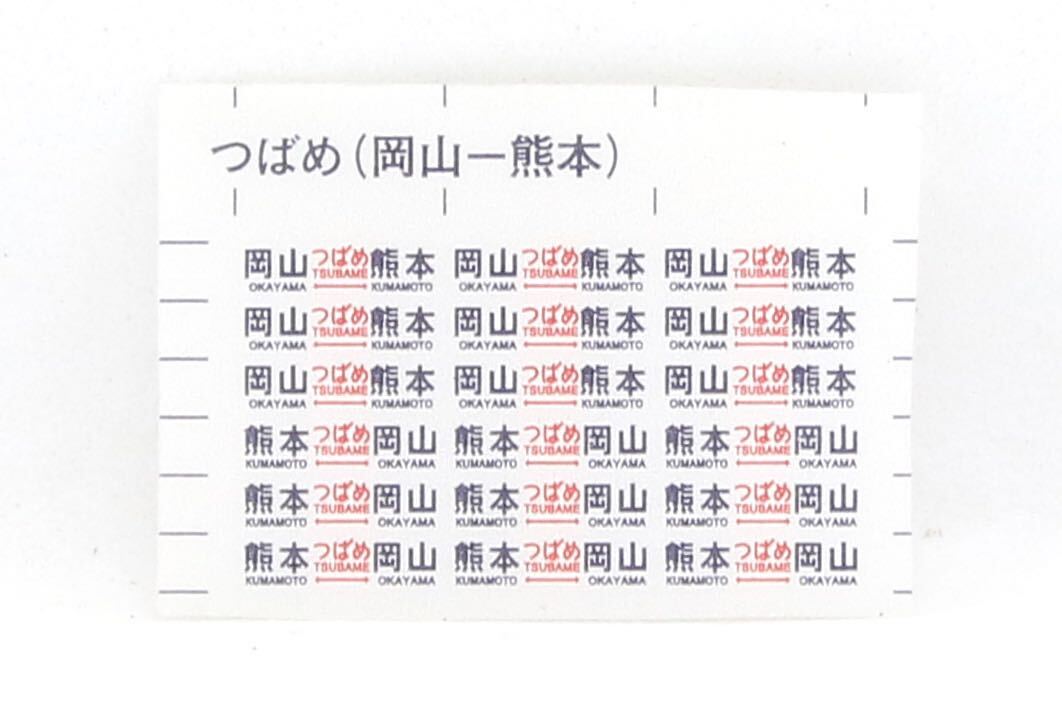 つばめ(岡山ー熊本)
岡山 つばめ 熊本 岡山 つばめ 熊本 岡山 つばめ 熊本
OKAYAMA TSUBAME KUMAMOTO OKAYAMA TSUBAME KUMAMOTO OKAYAMA TSUBAME KUMAMOTO
岡山 つばめ 熊本 岡山 つばめ 熊本 岡山 つばめ 熊本
OKAYAMA TSUBAME KUMAMOTO OKAYAMA TSUBAME KUMAMOTO OKAYAMA TSUBAME KUMAMOTO
岡山 つばめ 熊本 岡山 つばめ 熊本 岡山 つばめ 熊本
OKAYAMA TSUBAME KUMAMOTO OKAYAMA TSUBAME KUMAMOTO OKAYAMA TSUBAME KUMAMOTO
熊本 つばめ 岡山 熊本 つばめ 岡山 熊本 つばめ 岡山
KUMAMOTO TSUBAME OKAYAMA KUMAMOTO TSUBAME OKAYAMA KUMAMOTO TSUBAME OKAYAMA
熊本 つばめ 岡山 熊本 つばめ 岡山 熊本 つばめ 岡山
KUMAMOTO TSUBAME OKAYAMA KUMAMOTO TSUBAME OKAYAMA KUMAMOTO TSUBAME OKAYAMA
熊本 つばめ 岡山 熊本 つばめ 岡山 熊本 つばめ 岡山
KUMAMOTO TSUBAME OKAYAMA KUMAMOTO TSUBAME OKAYAMA KUMAMOTO TSUBAME OKAYAMA